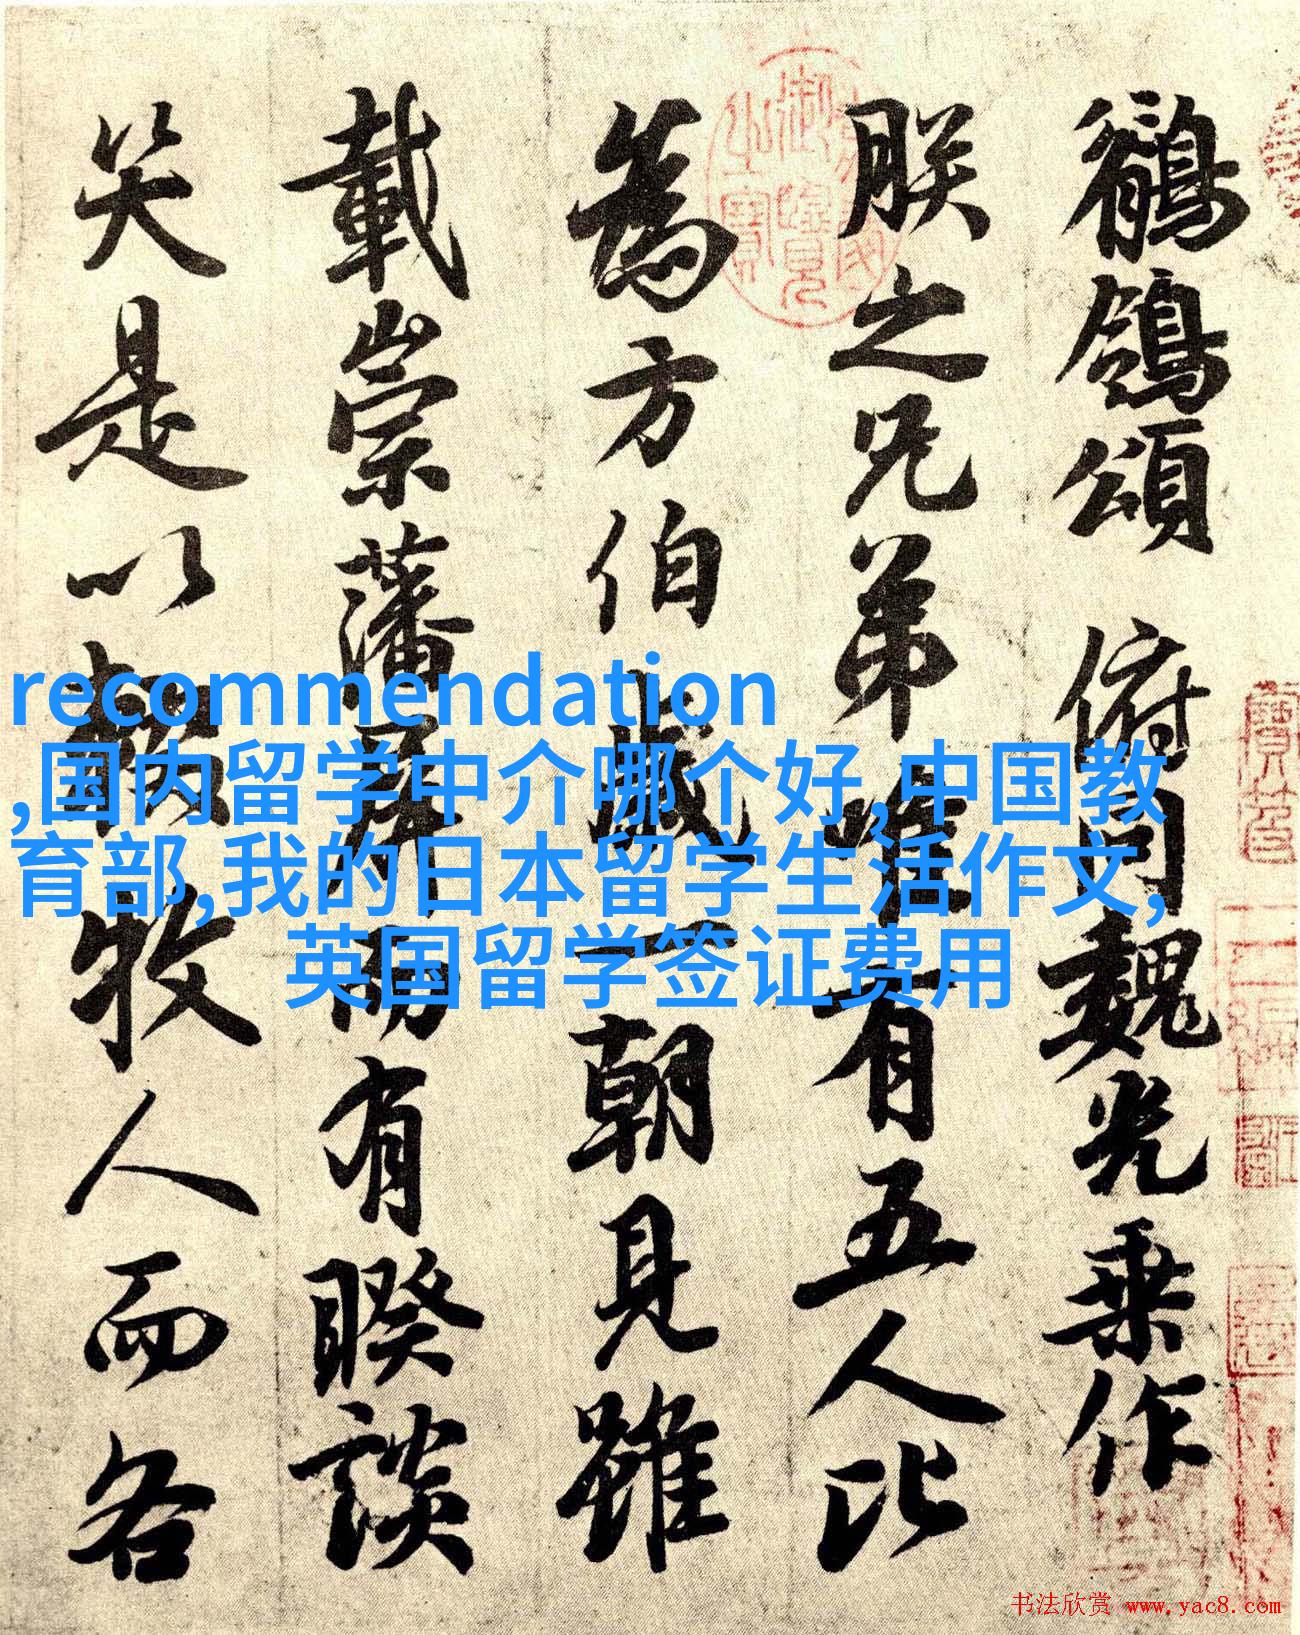 鶺鴒頌 俯同魏光乘作
朕之兄弟唯有五人比
為方伯歲一朝見雖
載崇藩屏而有睽談
笑是以輟牧人而各
recommendation
,国内留学中介哪个好,中国教
育部,我的日本留学生活作文,
英国留学签证费用
书法欣赏 www.yac8.com